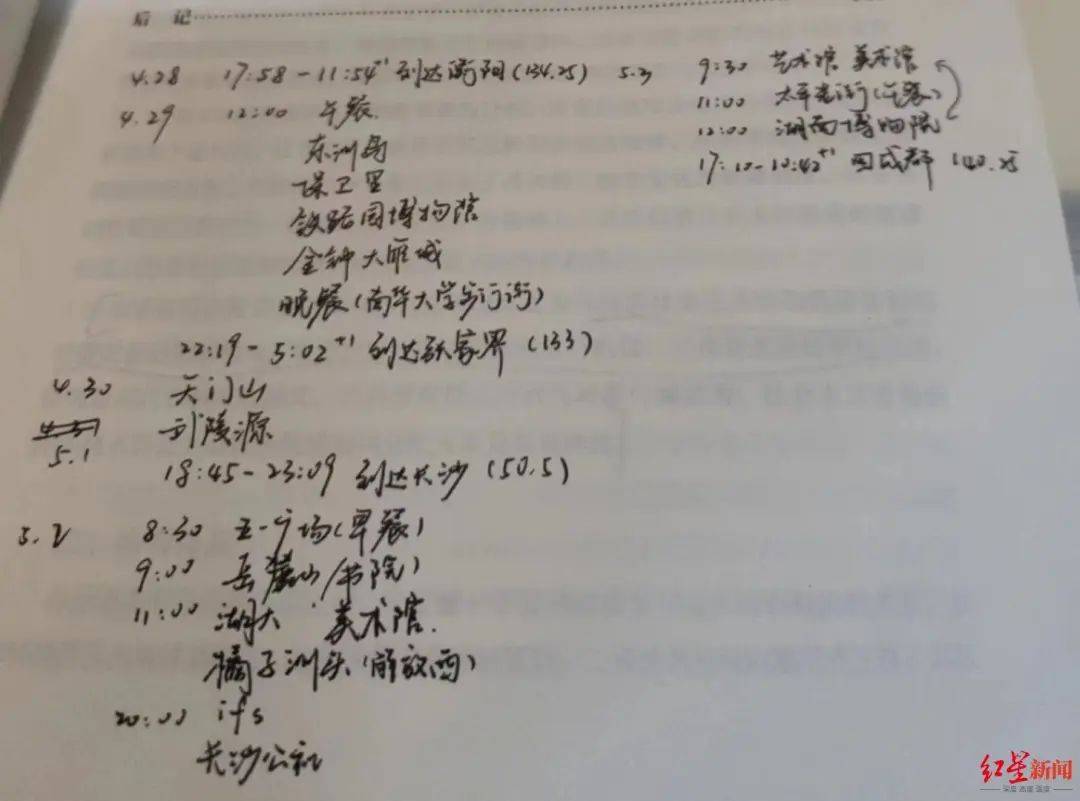 后 记
4.28 17:58-11:54+1 到达衡阳(134.25)
4.29 12:00 午餐.
东洲岛
保卫里
铁路园博物馆
金钟大雁城
晚餐(南华大学步行街)
22:19-5:02+1 到达张家界 (133)
4.30 天门山
5.1 武陵源
18:45-23:09 到达长沙 (50.5)
5.2 8:30 五一广场(早餐)
9:00 岳麓山(书院)
11:00 湖大 美术馆.
橘子洲头(解放西)
20:00 ifs
长沙公社
5.3 9:30 艺术馆 美术馆
11:00 太平老街(午餐)
12:00 湖南博物院
17:10-10:42+1 回成都 140.25
红星新闻
深度 态度 温度